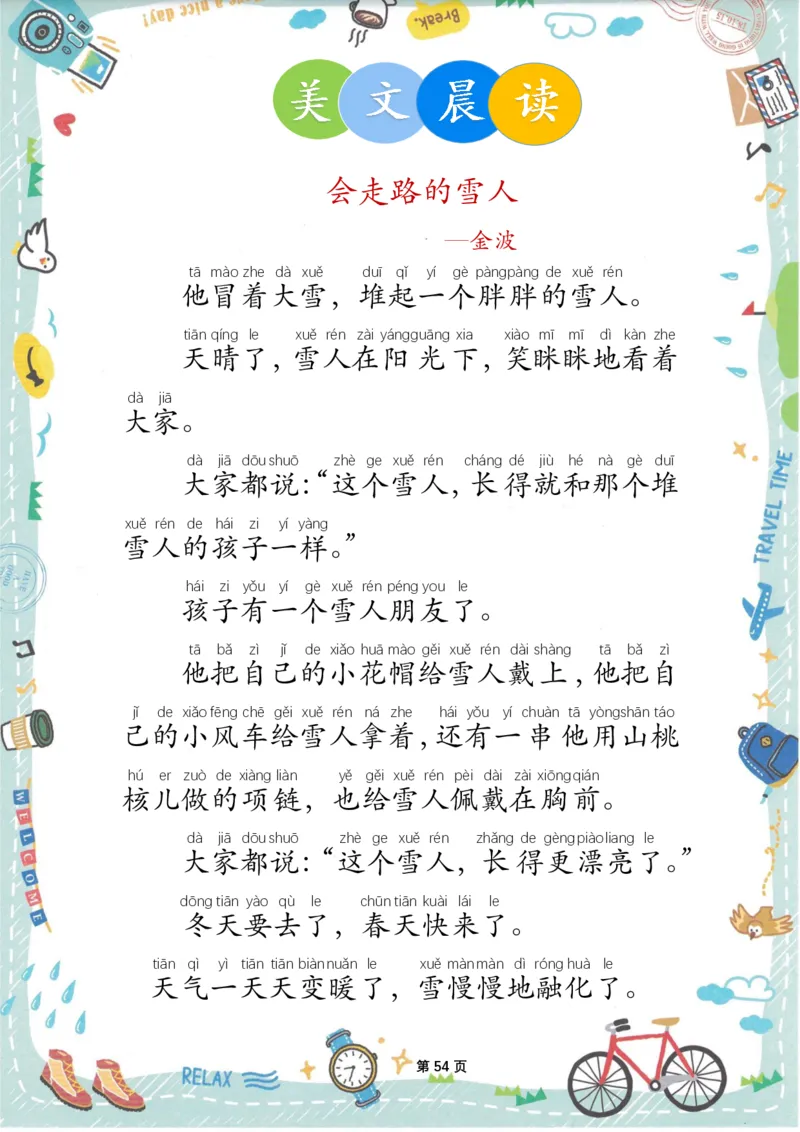 have a nice day!
Break.
美文晨读
会走路的雪人
—金波
tā mào zhe dà xuě duī qǐ yí gè pàng pàng de xuě rén
他冒着大雪，堆起一个胖胖的雪人。
tiān qíng le xuě rén zài yáng guāng xia xiào mī mī dì kàn zhe
天晴了，雪人在阳光下，笑眯眯地看着
dà jiā
大家。
dà jiā dōu shuō zhè ge xuě rén cháng dé jiù hé nà gè duī
大家都说：“这个雪人，长得就和那个堆
xuě rén de hái zi yí yàng
雪人的孩子一样。”
hái zi yǒu yí gè xuě rén péng you le
孩子有一个雪人朋友了。
tā bǎ zì jǐ de xiǎo huā mào gěi xuě rén dài shàng tā bǎ zì
他把自己的小花帽给雪人戴上，他把自
jǐ de xiǎo fēng chē gěi xuě rén ná zhe hái yǒu yí chuàn tā yòng shān táo
己的小风车给雪人拿着，还有一串他用山桃
hú er zuò de xiàng liàn yě gěi xuě rén pèi dài zài xiōng qián
核儿做的项链，也给雪人佩戴在胸前。
dà jiā dōu shuō zhè ge xuě rén zhǎng de gèng piào liang le
大家都说：“这个雪人，长得更漂亮了。”
dōng tiān yào qù le chūn tiān kuài lái le
冬天要去了，春天快来了。
tiān qì yì tiān tiān biàn nuǎn le xuě màn màn dì róng huà le
天气一天天变暖了，雪慢慢地融化了。
TRAVEL TIME
WELCOME
RELAX
第 54 页